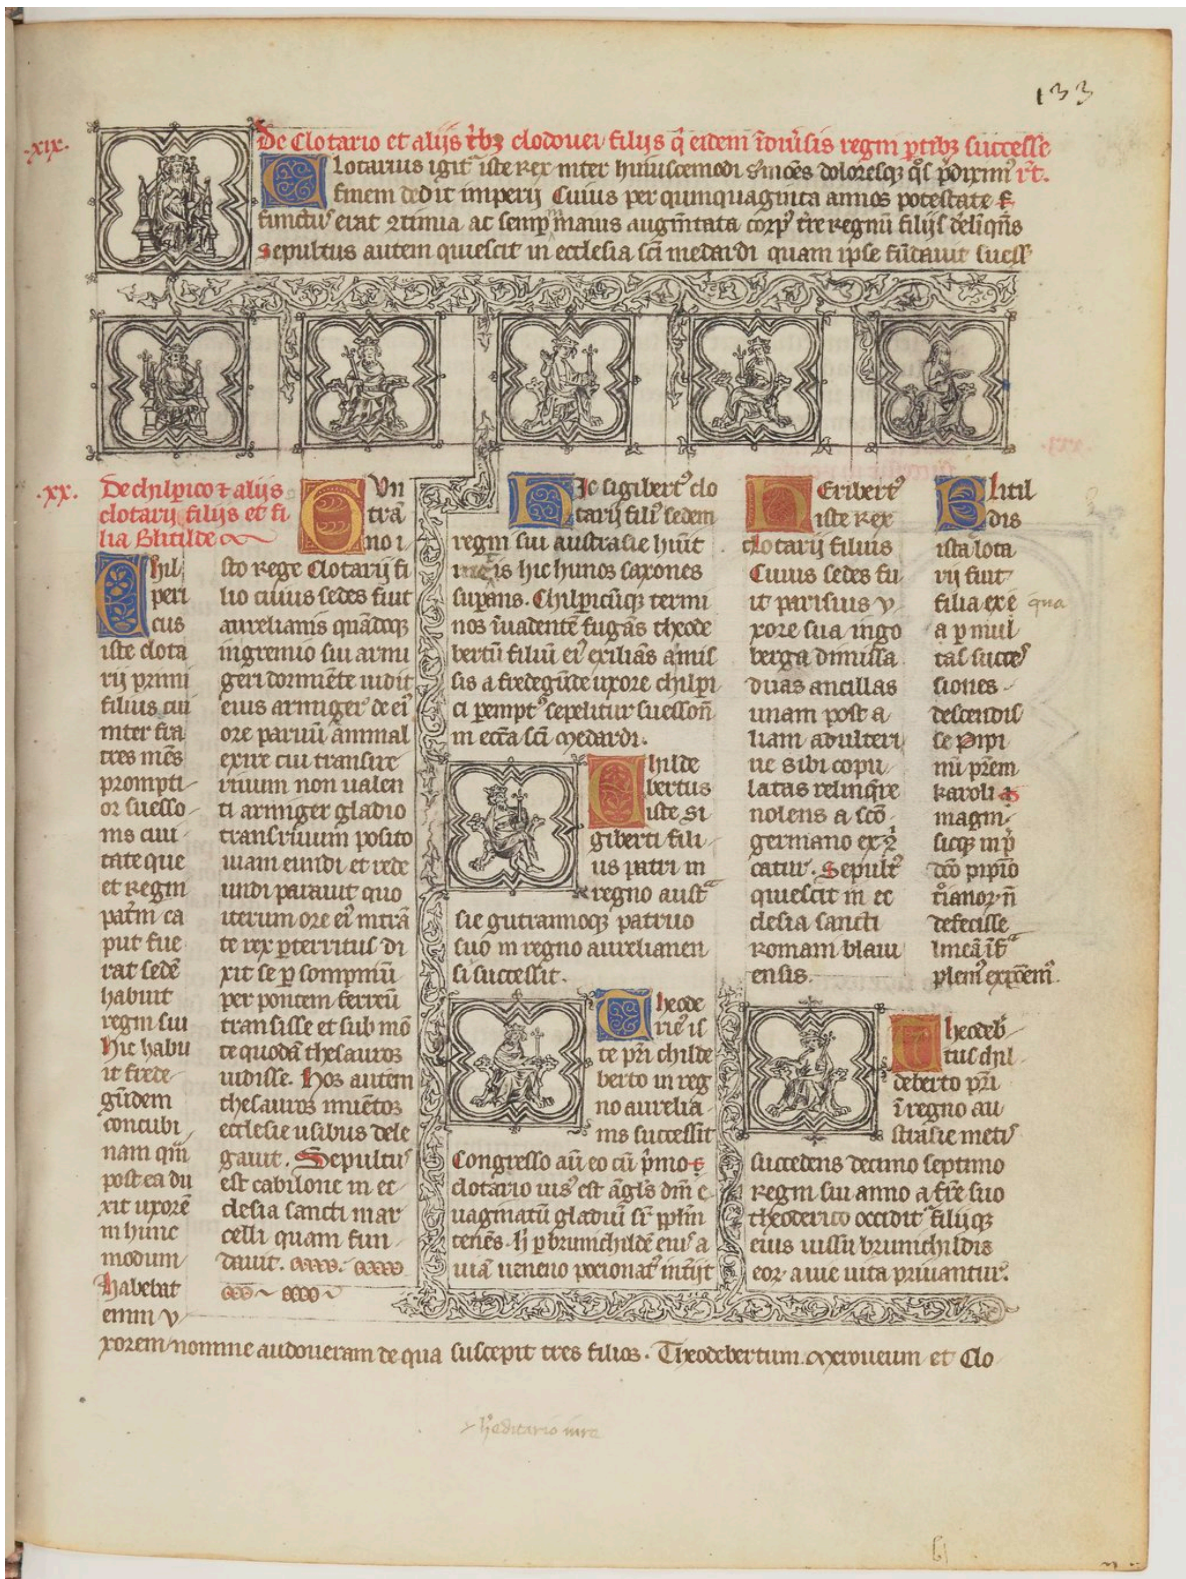 133
.xix.
De Clotario et alijs tribꝫ clodouei filijs q̄ eidem ī diuͥsis regni ꝑtibꝫ successe
rt̄.
Clotarius igit᷑ iste Rex inter huiuscemodi
finem dedit imperij Cuius per quinquaginta annos potestate
functus erat ac semp maius augm̄tata regnū filijs
Sepultus autem quiescit in ecclesia sc̄i medardi quam ipse fūdauit suess᷑
.xx.
De chilꝑico ⁊ alijs
clotarij filijs et fi
lia Blitilde
Chil
peri
cus
iste clota
rij primi
filius cui
inter fra
tres mēs
prompti
or suesso
nis ciui
tate que
et Regni
pat̄m ca
put fue
rat sedē
habuit
regni sui
Hic habu
it frede
gūdem
concubi
nam q̄m
post ea du
xit uxorē
in hunc
modum
Habebat
enim v
xorem nomine audoueram de qua suscepit tres filios. Theodebertum. Meroueum et Clo
Gun
trā
no i
sto rege Clotarij fi
lio cuius sedes fuit
aurelianis quādoqꝫ
in gremio sui armi
geri dormiēte uidit
eius armiger de ei᷒
ore paruū animal
exire cui transire
riuum non ualen
ti armiger gladio
trans riuum posito
uiam eundi et rede
undi parauit quo
iterum ore ei᷒ intrā
te rex ꝑterritus di
xit se ꝑ sompniū
per pontem ferreū
transisse et sub mō
te quodā thesauros
uidisse. Hos autem
thesauros inuētos
ecclesie usibus dele
gauit. Sepultus
est cabilone in ec
clesia sancti mar
celli quam fun
dauit.
Hic sigibert᷒ clo
tarij fili᷒ sedem
regni sui austrasie hūit
is hic hunos saxones
suꝑans. Chilꝑicūqꝫ termi
nos īuadentē fugās theode
bertū filiū ei᷒ exiliās amis
sis a fredegūde uxore chilꝑi
ci ꝑempt᷒ sepelitur suesson̄
in ecc̄a sc̄i Medardi.
Childe
bertus
iste si
giberti fili
us patri in
regno aust᷑
sie gutrannoqꝫ patruo
suo in regno aurelianen
si successit.
Theode
ric᷒ is
te pr̄i childe
berto in reg
no aurelia
nis successit
Congresso aū eo cū p̄mo
clotario uis᷒ est āgl̓s dn̄i e
uaginatū gladiū sr̄ ppl̄m
tenēs. h̄ ꝑ brunichildē eius a
uiā ueneno pocionat᷒ int̓ijt
Heribert᷒
iste Rex
clotarij filius
Cuius sedes fu
it parisius v
xore sua ingo
berga dimissa
duas ancillas
unam post a
liam adulteri
ne sibi copu
latas relinq̄re
nolens a sc̄o
germano ex 9
catur. Sepult᷒
quiescit in ec
clesia sancti
Romani blaui
ensis.
Theodeb̓
tus chil
deberto pr̄i
ī regno au
strasie met̓
succedens decimo septimo
Regni sui anno a fr̄e suo
theoderico occidit᷑ filiiqꝫ
eius iussu brunichildis
eoꝝ auie uita priuantur.
Blitil
dis
ista lota
rij fuit
filia ex ē
qua
a ꝑ mul
tas succes
siones
descendis
se Pipi
nū pr̄em
karoli
magni
sicqꝫ in
deō pipīo
defecisse
lineā